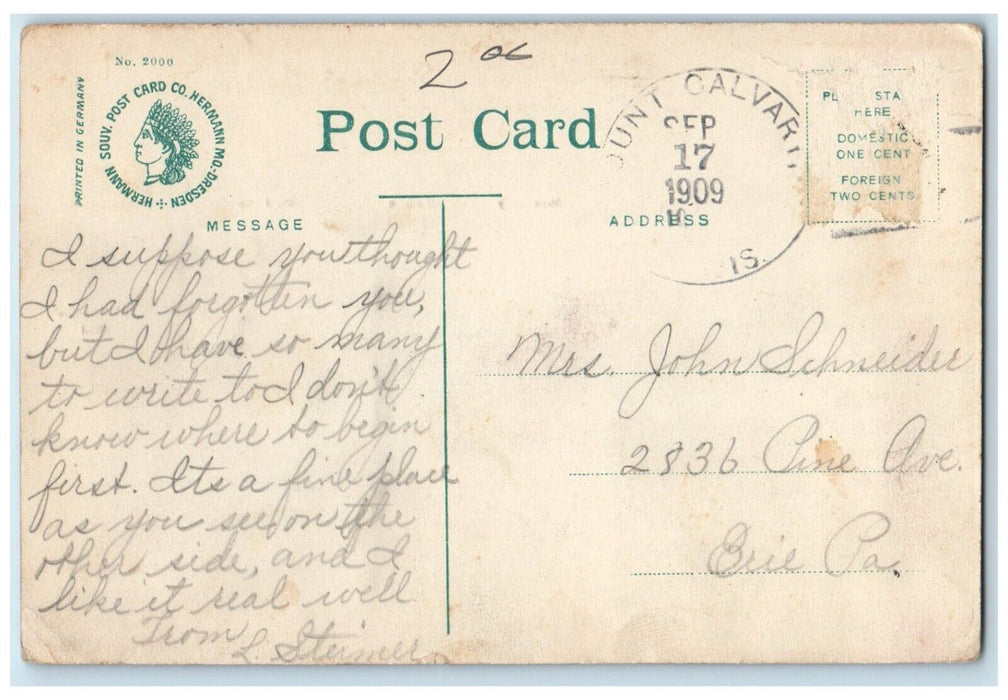 No. 2000
2 00
PRINTED IN GERMANY
HERMANN SOUV. POST CARD CO. HERMANN MO.-DRESDEN
Post Card
OUNT CALVARY,
SEP
17
1909
IS.
PL STA
HERE
DOMESTIC
ONE CENT
FOREIGN
TWO CENTS
MESSAGE
ADDRESS
I suppose you thought
I had forgotten you,
but I have so many
to write to I don't
know where to begin
first. Its a fine place
as you see on the
other side, and I
like it real well
From
L. Steimer
Mrs. John Schneider
2836 Pine Ave.
Erie Pa.